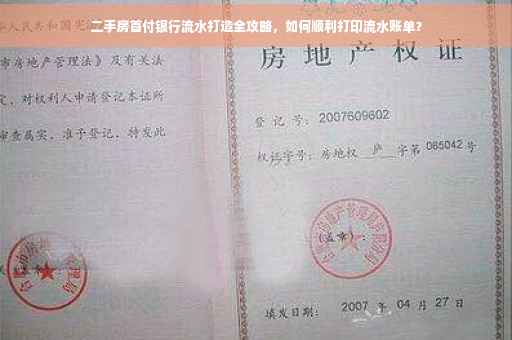 二手房首付银行流水打造全攻略，如何顺利打印流水账单？
人民共和国宪
市房地产管理法》及有关
定，对权利人申请登记本证所
审查属实，准予登记，特发此
房地产权证
登记号：2007609602
权证字号：房地权 庐 字第 085042 号
(盖章)：
填发日期：2007 年 04 月 27 日